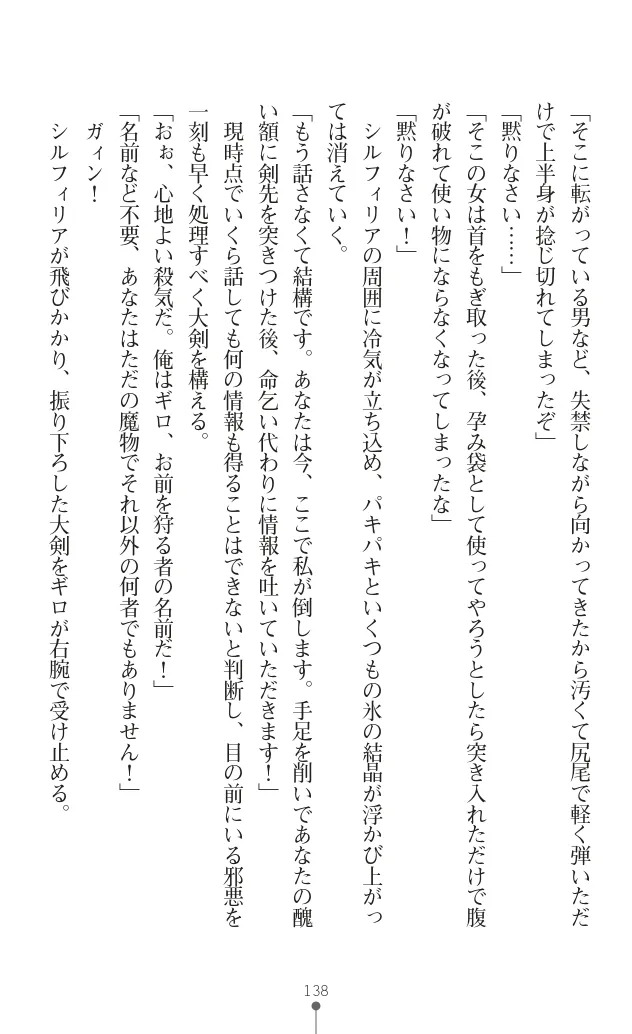 「そこに転がっている男など、失禁しながら向かってきたから汚くて尻尾で軽く弾いただ
けで上半身が捻じ切れてしまったぞ」
「黙りなさい……」
「そこの女は首をもぎ取った後、孕み袋として使ってやろうとしたら突き入れただけで腹
が破れて使い物にならなくなってしまったな」
「黙りなさい！」
　シルフィリアの周囲に冷気が立ち込め、パキパキといくつもの氷の結晶が浮かび上がっ
ては消えていく。
「もう話さなくて結構です。あなたは今、ここで私が倒します。手足を削いであなたの醜
い額に剣先を突きつけた後、命乞い代わりに情報を吐いていただきます！」
　現時点でいくら話しても何の情報も得ることはできないと判断し、目の前にいる邪悪を
一刻も早く処理すべく大剣を構える。
「おぉ、心地よい殺気だ。俺はギロ、お前を狩る者の名前だ！」
「名前など不要、あなたはただの魔物でそれ以外の何者でもありません！」
　ガィン！
　シルフィリアが飛びかかり、振り下ろした大剣をギロが右腕で受け止める。
138